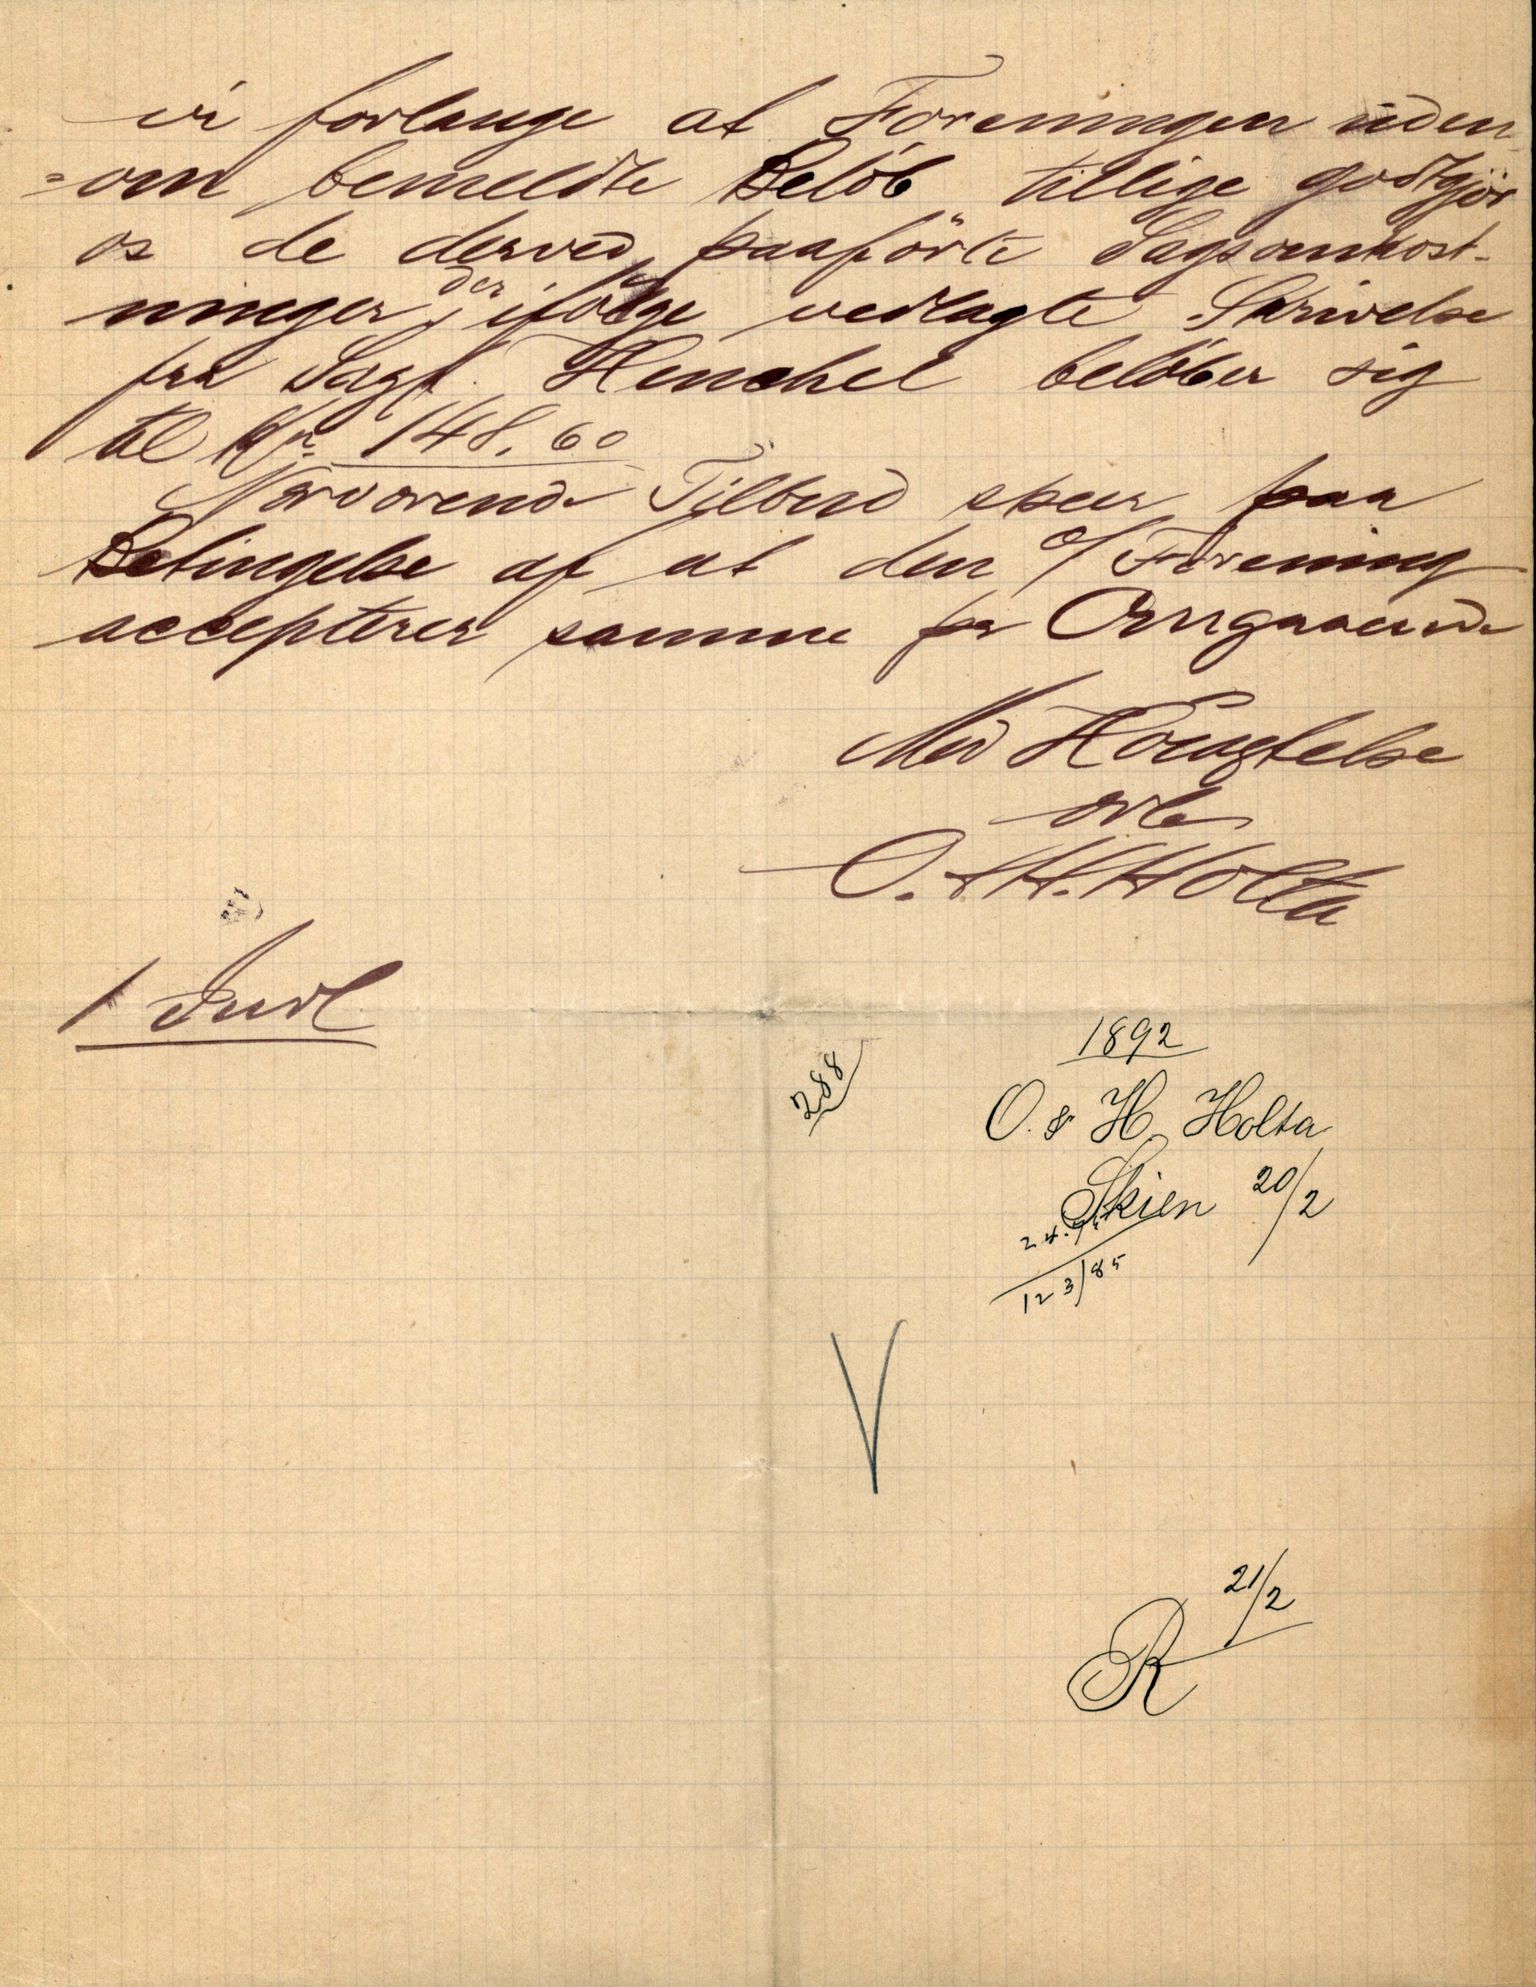 vi forlange at Foreningen uden-
=om bemeldte Beløb tillige godtgjør
os de derved paaførte Sagsomkost-
ninger, der ifølge vedlagte Skrivelse
fra Sagf. Henschel beløber sig
til Kr. 148.60
Nærværende Tilbud skeer paa
Betingelse af at den o/ Forening
accepterer samme pr Omgaaende
Med Høiagtelse
O. & H. Holta
1 Indl.
1892
288
O. & H. Holta
Skien 20/2
24.
123/85
V
21/2
R